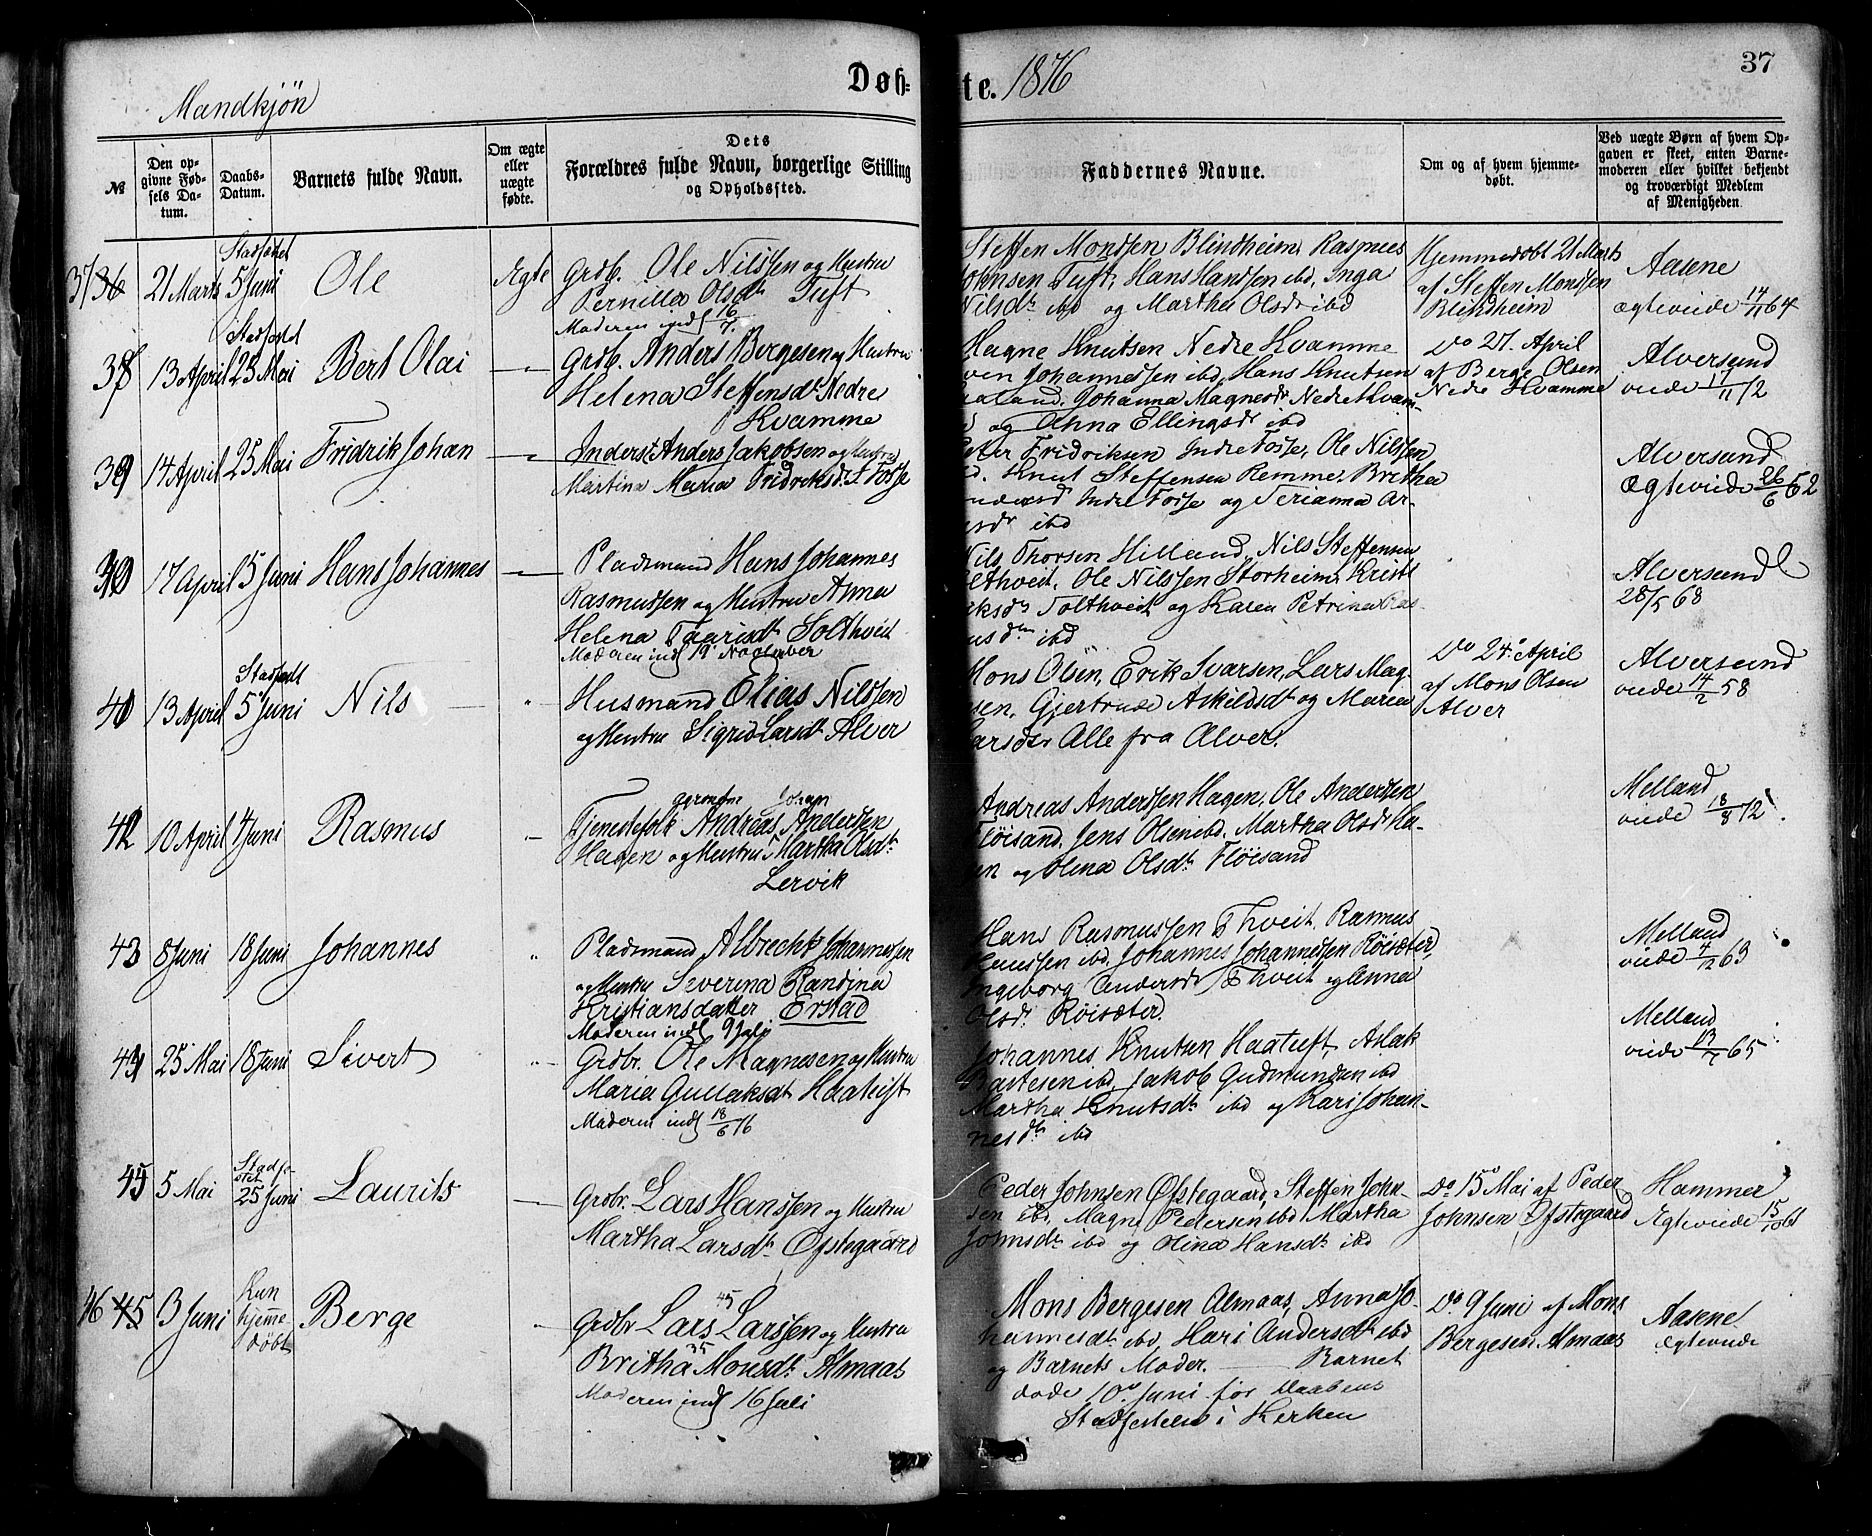 37
Mandkjøn
Døb-
te. 1876
№
Den opgivne Fødsels Datum.
Daabs-Datum.
Barnets fulde Navn.
Om ægte eller uægte fødte.
Dets
Forældres fulde Navn, borgerlige Stilling
og Opholdssted.
Faddernes Navne.
Om og af hvem hjemmedøbt.
Ved uægte Børn af hvem Opgaven er skeet, enten Barnemoderen eller hvilket bekjendt og troværdigt Medlem af Menigheden.
37 36
21 Marts
Stadfæstet
5 Juni
Ole
Egte
Grdb. Ole Nilssen og Hustru
Pernilla Olsdt Tuft
Moderen indl 16/7.
Steffen Monssen Blindheim, Rasmus
Johnsen Tuft, Hans Hanssen ibd, Inga
Nilsdt ibd og Martha Olsdr ibd
Hjemmedøbt 21 Marts
af Steffen Monssen
Blindheim
Aasene
ægteviede 14/11 64
38
13 April
Stadfæstet
25 Mai
Bert Olai
Grdb. Anders Bergesen og Hustru
Helena Steffensdt Nedre
Kvamme
Magne Knutsen Nedre Kvamme
Johannessen ibd, Hans Knutsen
Johanna Magnesdr Nedre Kvam-
og Anna Ellingsdr ibd
Do 27. April
af Berge Olsen
Nedre Kvamme
Alversund
viede 17/11 72
39
14 April
25 Mai
Fridrik Johan
Inderst Anders Jakobsen og Hustru
Martina Maria Fridriksdr. I Fosse
Fridriksen Indre Fosse, Ole Nilssen
Knut Steffensen Remme, Britha
Indre Fosse og Serianna An-
ibd
Alversund
Ægteviede 26/6 62
40
17 April
15 Juni
Hans Johannes
Pladsmand Hans Johannes
Rasmussen og Hustru Anna
Helena Tjarisdt Solthveit
Moderen indl 19 November
Nils Thorsen Hilland, Nils Steffensen
Ole Nilssen Storheim, Kristi
Tolthveit og Karen Petrina Ras-
ibd
Alversund
28/5 68
41
13 April
Stadfæstet
5 Juni
Nils
Husmand Elias Nilssen
og Hustru Sigrid Larsdt Alver
Mons Olsen, Erik Ivarsen, Lars Mag-
sen, Gjertrude Askildsdt og Maria
Larsdtr Alle fra Alver.
Do 24. April
af Mons Olsen
Alver
Alversund
viede 14/2 58
42
10 April
4 Juni
Rasmus
Johan
Tjenestefolk Andreas Andersen
Hagen og Hustru Martha Olsdtr
Lervik
Andreas Anderssen Hagen, Ole Anderssen
Fløisand, Jens Olsen ibd. Martha Olsdr Ha-
gen og Olina Olsdt. Fløisand
Melland
viede 18/8 72
43
8 Juni
18 Juni
Johannes
Pladsmand Albrecht Johannessen
og Hustru Severina Randina
Kristiansdatter Erstad
Moderen indl 9 Juli
Hans Rasmussen Thveit, Rasmus
Knussen ibd. Johannes Johannessen Røisæter,
Ingeborg Andersdr Thveit og Anna
Olsdr Røisæter.
Melland
viede 4/12 63
44
25 Mai
18 Juni
Sivert
Grdbr. Ole Magnesen og Hustru
Maria Gullaksdt Haatuft
Moderen indl 18/6 76
Johannes Knutsen Haatuft, Aslak
ibd, Jakob Gudmundsen ibd
Martha Knutsdt ibd og Kari Johan-
nesdtr ibd
Melland
viede 65
45
5 Mai
Stadfæ-
stet
25 Juni
Laurits
Grdbr. Lars Hanssen og Hustru
Martha Larsdt. Ofstegaard
Peder Johnsen Ofstegaard, Steffen John-
sen ibd, Magne Pedersen ibd Martha
Johnsdt ibd og Olina Hansdt ibd
Do 15de Mai af Peder
Johnsen Ofstegaard
Hammer
Ægteviede 15/10 61
46 45
3 Juni
Kun
hjemme
døbt
Berge
45
Grdbr Lars Larssen og Hustru
35
Britha Monsdt Almaas
Moderen indl 16 Juli
Mons Bergesen Almaas, Anna Jo-
hannesdt ibd, Kari Andersdt ibd
og Barnets Moder. Barnet
døde 10de Juni før Daabens
Stadfestelse i Kirken
Do 9 Juni af Mons
Bergesen Almaas
Aasene
Ægteviede